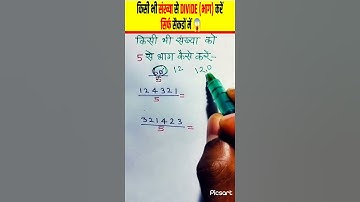 किसी भी संख्या से DIVIDE (भाग) करें
सिर्फ सैकडों में 😱
किसी भी संख्या को
5 से भाग कैसे करें:-
60/5 12 12.0
124321/5 =
321423/5 =
Picsart